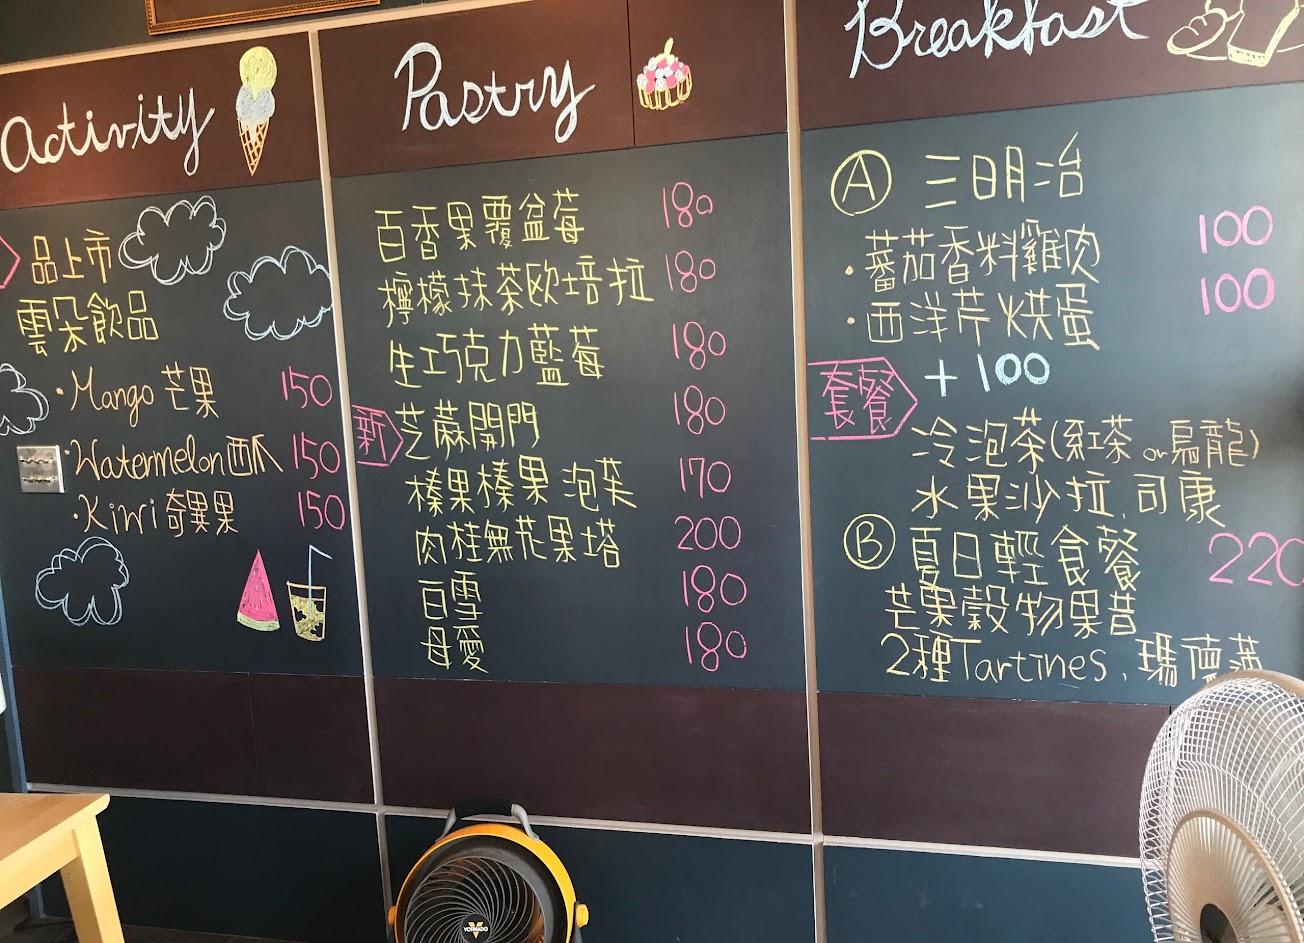 Activity
品上市
雲朵飲品
・Mango 芒果 150
・Watermelon 西瓜 150
・Kiwi 奇異果 150
Pastry
百香果覆盆莓 180
檸檬抹茶歐培拉 180
生巧克力藍莓 180
新 芝蔴開門 180
榛果榛果泡芙 170
肉桂無花果塔 200
白雪 180
母愛 180
Breakfast
A 三明治
・蕃茄香料雞肉 100
・西洋芹烘蛋 100
套餐 +100
冷泡茶(紅茶 or 烏龍)
水果沙拉.司康
B 夏日輕食餐 220
芒果穀物果昔
2種Tartines、瑪德蓮
VORNADO